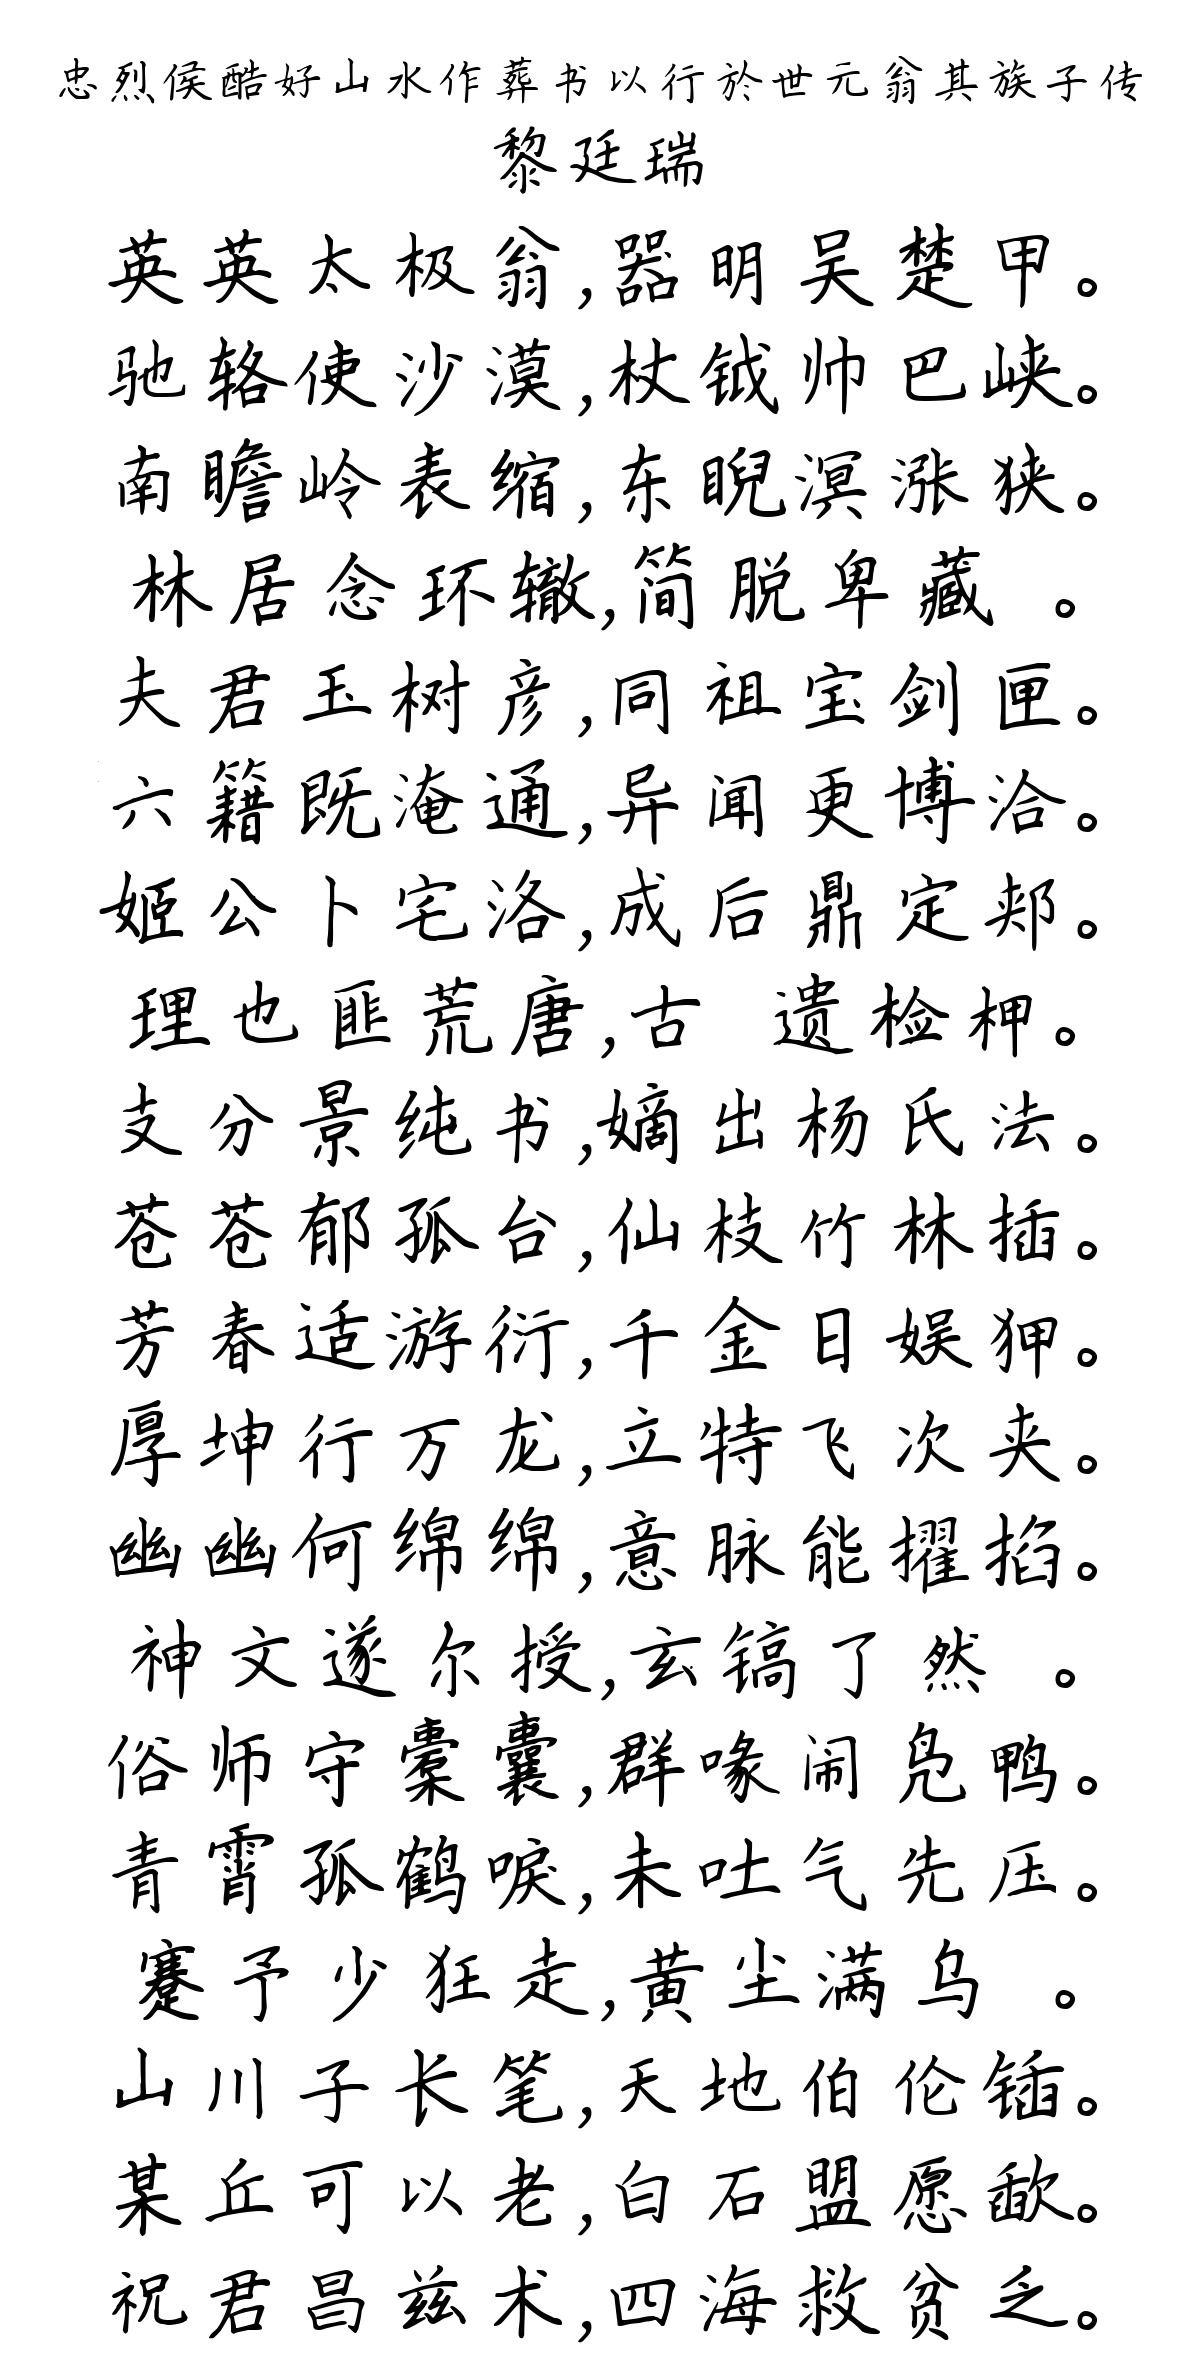 忠烈侯酷好山水作葬书以行於世元翁其族子传
黎廷瑞
英英太极翁,器明吴楚甲。
驰辂使沙漠,杖钺帅巴峡。
南瞻岭表缩,东睨溟涨狭。
林居念环辙,简脱卑藏 。
夫君玉树彦,同祖宝剑匣。
六籍既淹通,异闻更博洽。
姬公卜宅洛,成后鼎定郏。
理也匪荒唐,古 遗检柙。
支分景纯书,嫡出杨氏法。
苍苍郁孤台,仙枝竹林插。
芳春适游衍,千金日娱狎。
厚坤行万龙,立特飞次夹。
幽幽何绵绵,意脉能擢掐。
神文遂尔授,玄镐了然 。
俗师守橐囊,群喙闹凫鸭。
青霄孤鹤唳,未吐气先压。
蹇予少狂走,黄尘满乌 。
山川子长笔,天地伯伦锸。
某丘可以老,白石盟愿歃。
祝君昌兹术,四海救贫乏。